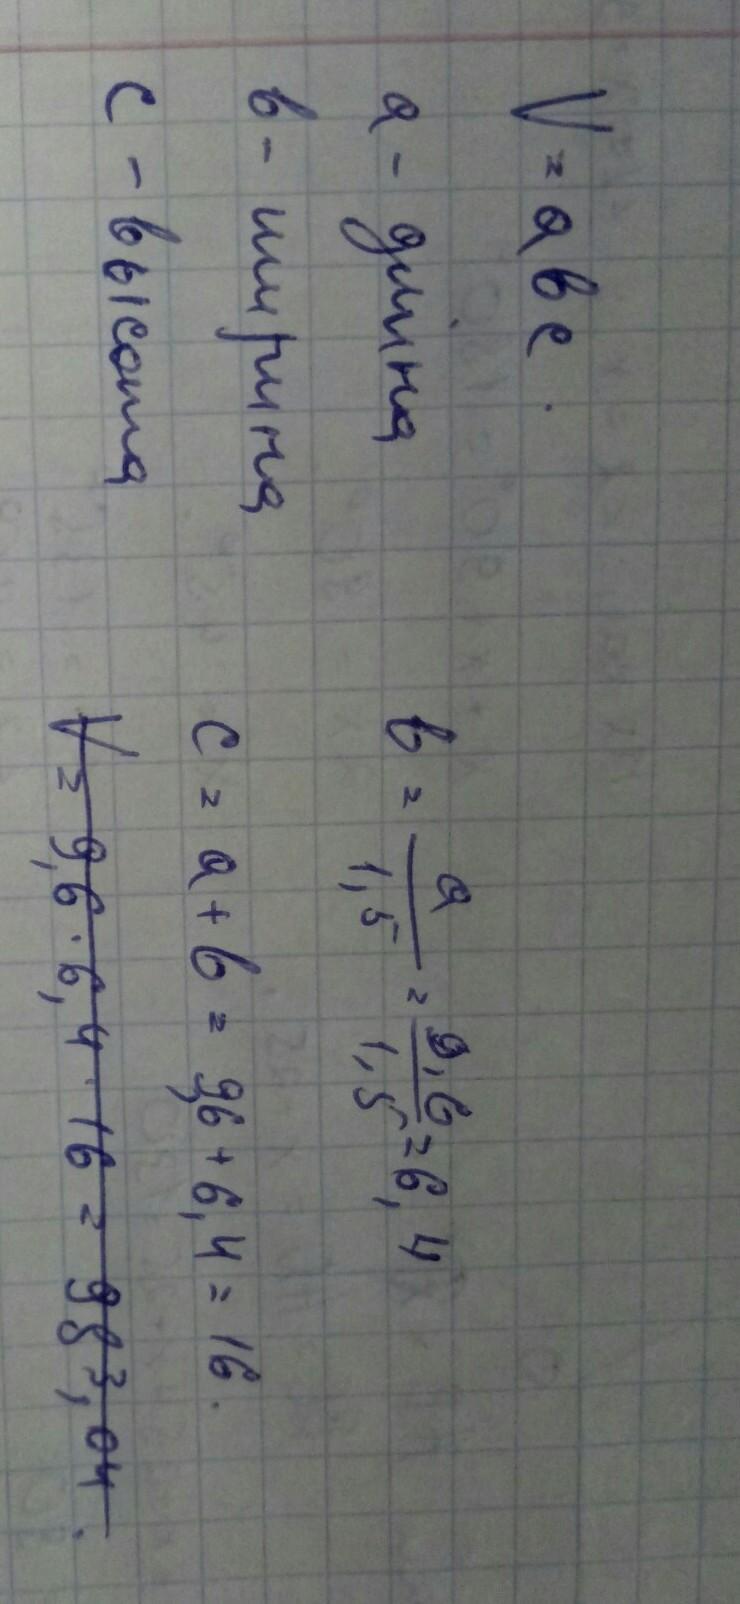 V = abc.
a - длина
b - ширина
c - высота
b = a/1,5 = 9,6/1,5 = 6,4
c = a + b = 9,6 + 6,4 = 16.
V = 9,6 · 6,4 · 16 = 983,04.